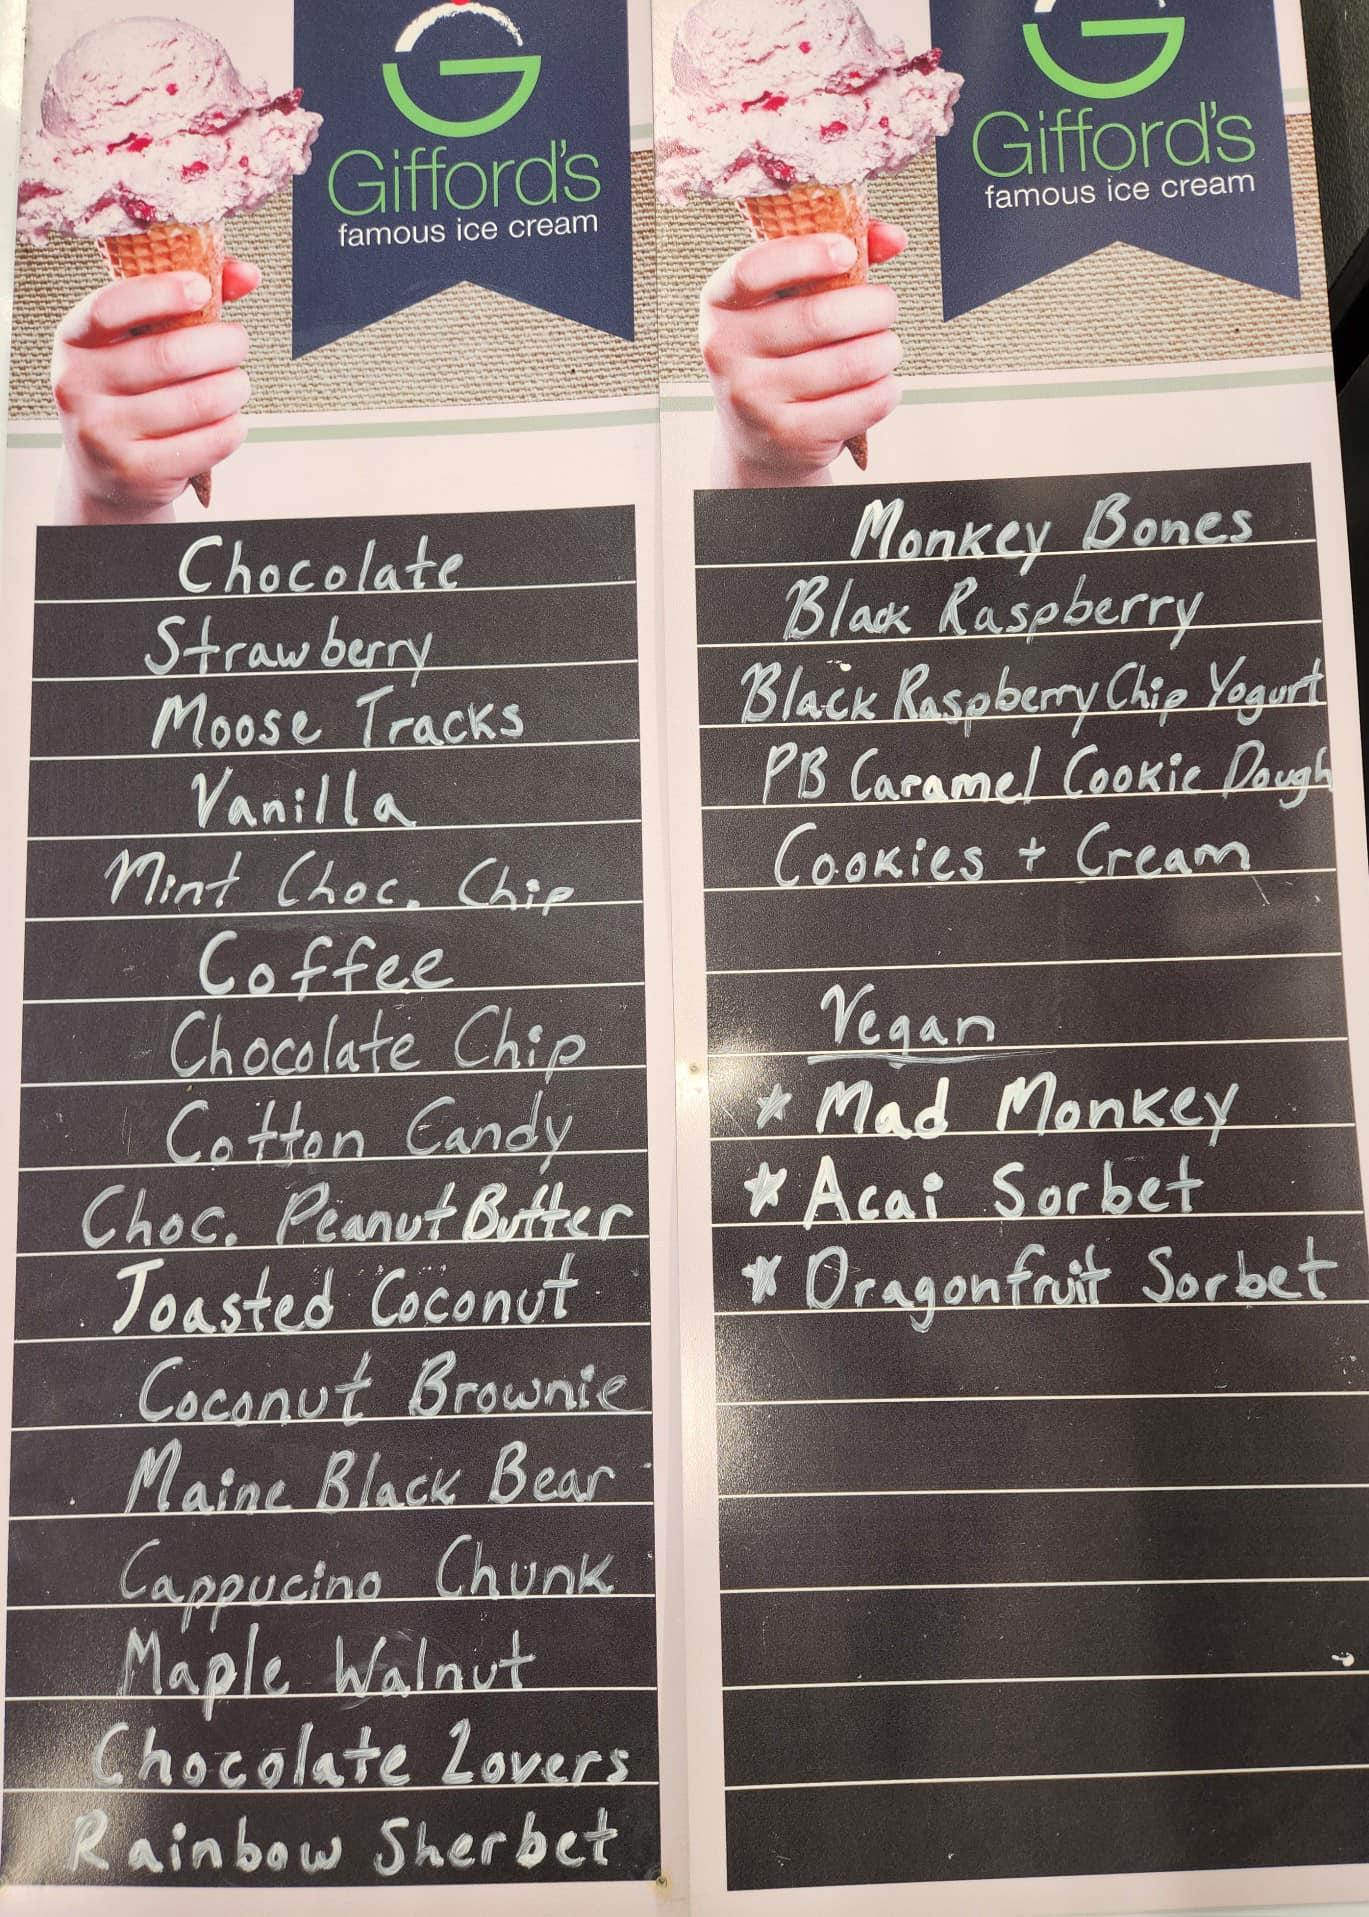 Gifford's
famous ice cream
Chocolate
Strawberry
Moose Tracks
Vanilla
Mint Choc. Chip
Coffee
Chocolate Chip
Cotton Candy
Choc. Peanut Butter
Toasted Coconut
Coconut Brownie
Maine Black Bear
Cappucino Chunk
Maple Walnut
Chocolate Lovers
Rainbow Sherbet
Gifford's
famous ice cream
Monkey Bones
Black Raspberry
Black Raspberry Chip Yogurt
PB Caramel Cookie Dough
Cookies + Cream
Vegan
* Mad Monkey
* Acai Sorbet
* Dragonfruit Sorbet